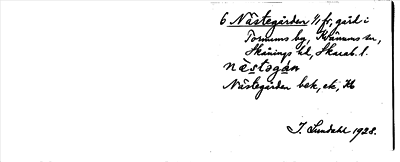 6 Nästegården 1/1 fr, gård i
Tornums by, Kvänums sn,
Skånings hd, Skarab. l.
nästəgán
Nästegården bek, ek, Hb
I. Lundahl 1928.